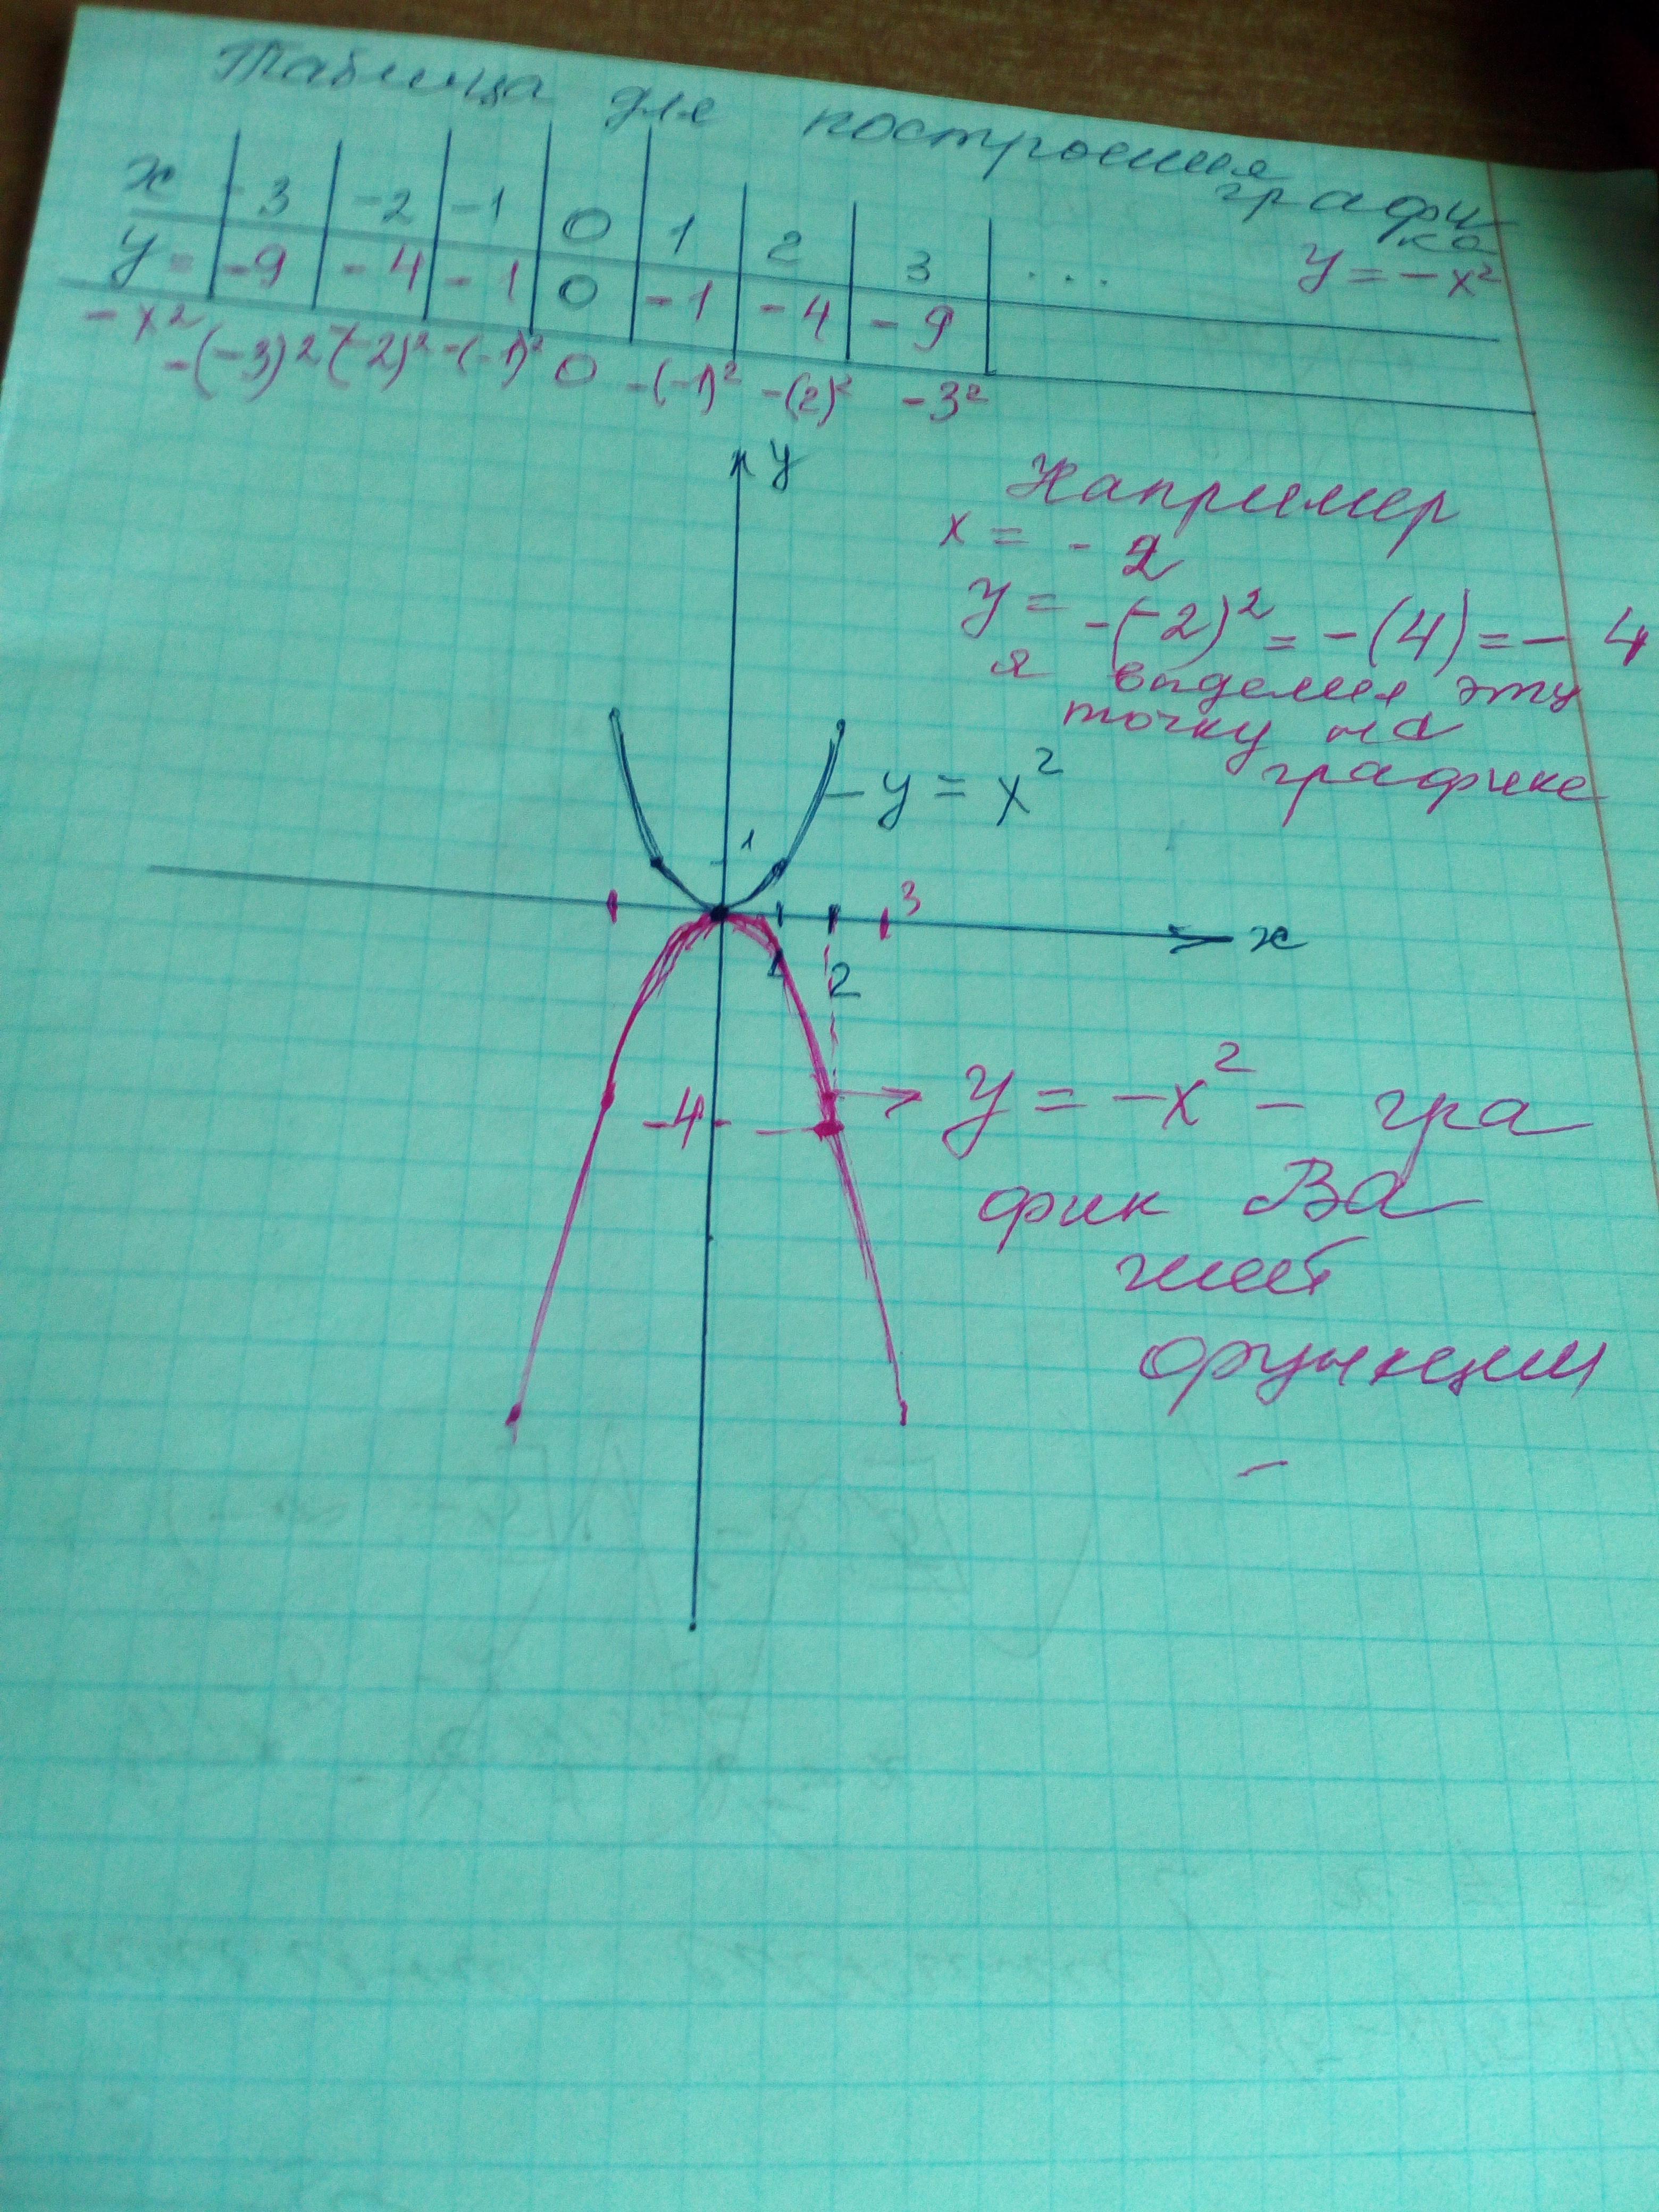 Таблица для построения
графи
ка
y = -x²
x -3 -2 -1 0 1 2 3 ...
y = -9 -4 -1 0 -1 -4 -9
-x² -(-3)² (-2)² -(-1)² 0 -(-1)² -(2)² -3²
y
Например
x = -2
y = -(-2)² = -(4) = -4
я выделил эту
точку на
графике
- y = x²
1
3
x
1 2
y = -x² - гра
-4
фик Ва
шей
функции